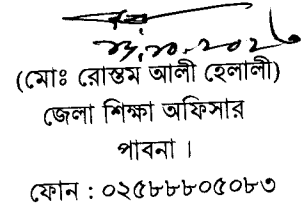 (মোঃ রোস্তম আলী হেলালী)
জেলা শিক্ষা অফিসার
পাবনা ।
ফোন : ০২৫৮৮৮০৫০৮৩